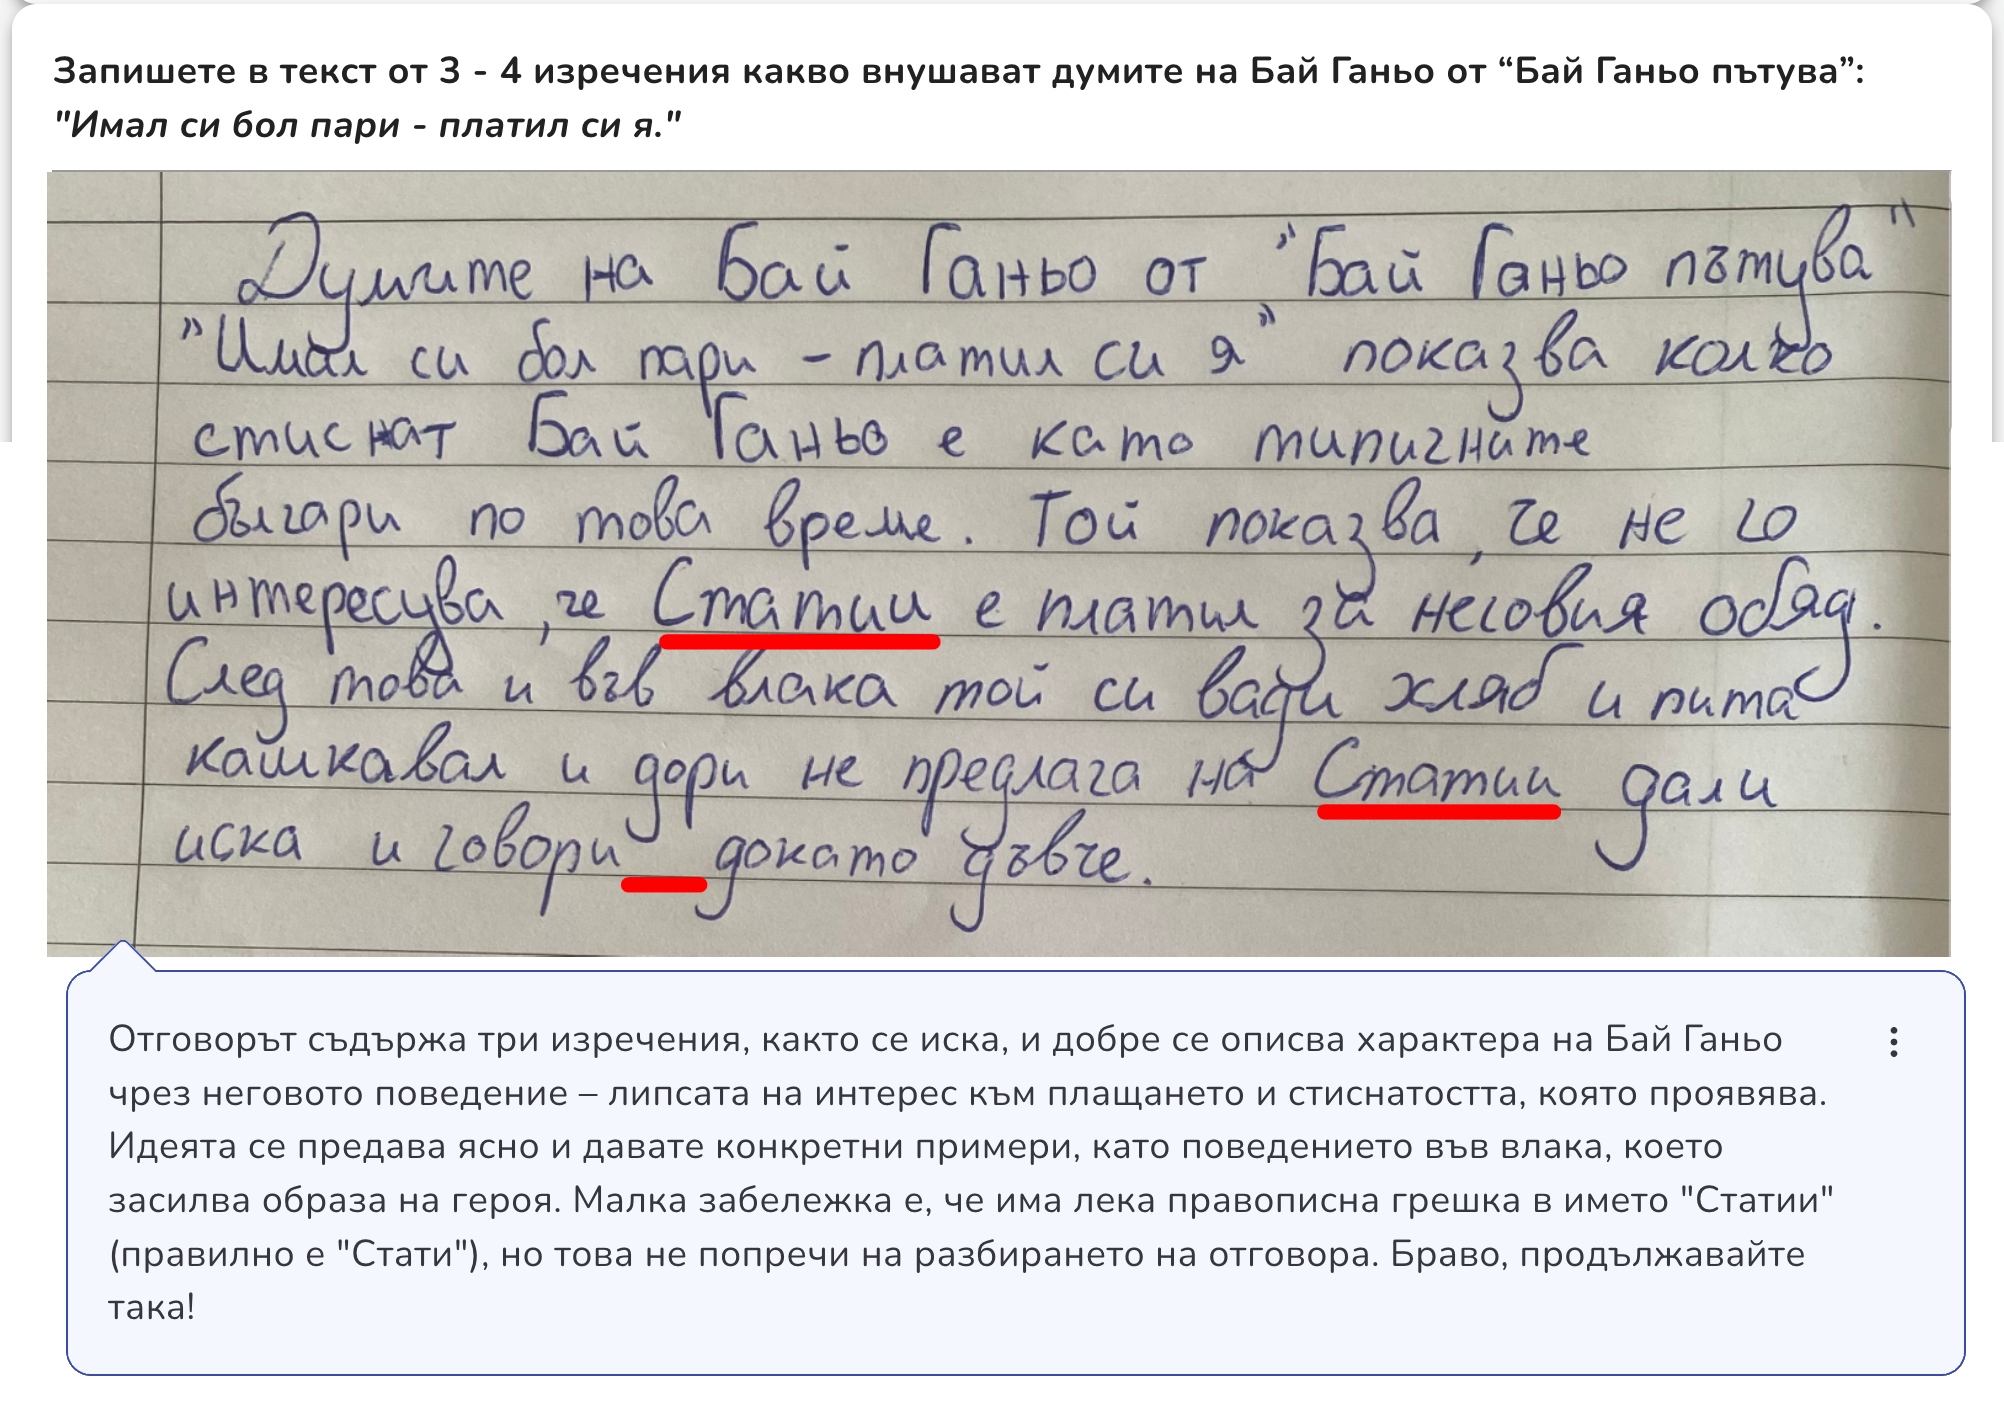 Запишете в текст от 3 - 4 изречения какво внушават думите на Бай Ганьо от “Бай Ганьо пътува”:
"Имал си бол пари - платил си я."
Думите на Бай Ганьо от "Бай Ганьо пътува"
"Имал си бол пари – платил си я" показва колко
стиснат Бай Ганьо е като типичните
българи по това време. Той показва, че не го
интересува, че Статии е платил за неговия обяд.
След това и във влака той си вади хляб и пита
кашкавал и дори не предлага на Статии дали
иска и говори докато дъвче.
Отговорът съдържа три изречения, както се иска, и добре се описва характера на Бай Ганьо
чрез неговото поведение – липсата на интерес към плащането и стиснатостта, която проявява.
Идеята се предава ясно и давате конкретни примери, като поведението във влака, което
засилва образа на героя. Малка забележка е, че има лека правописна грешка в името "Статии"
(правилно е "Стати"), но това не попречи на разбирането на отговора. Браво, продължавайте
така!